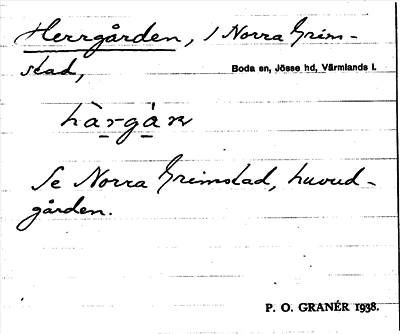 Herrgården, / Norra Grim-
stad,
Boda sn, Jösse hd, Värmlands l.
Se Norra Grimstad, huvud-
gården.
P. O. GRANÉR 1938.